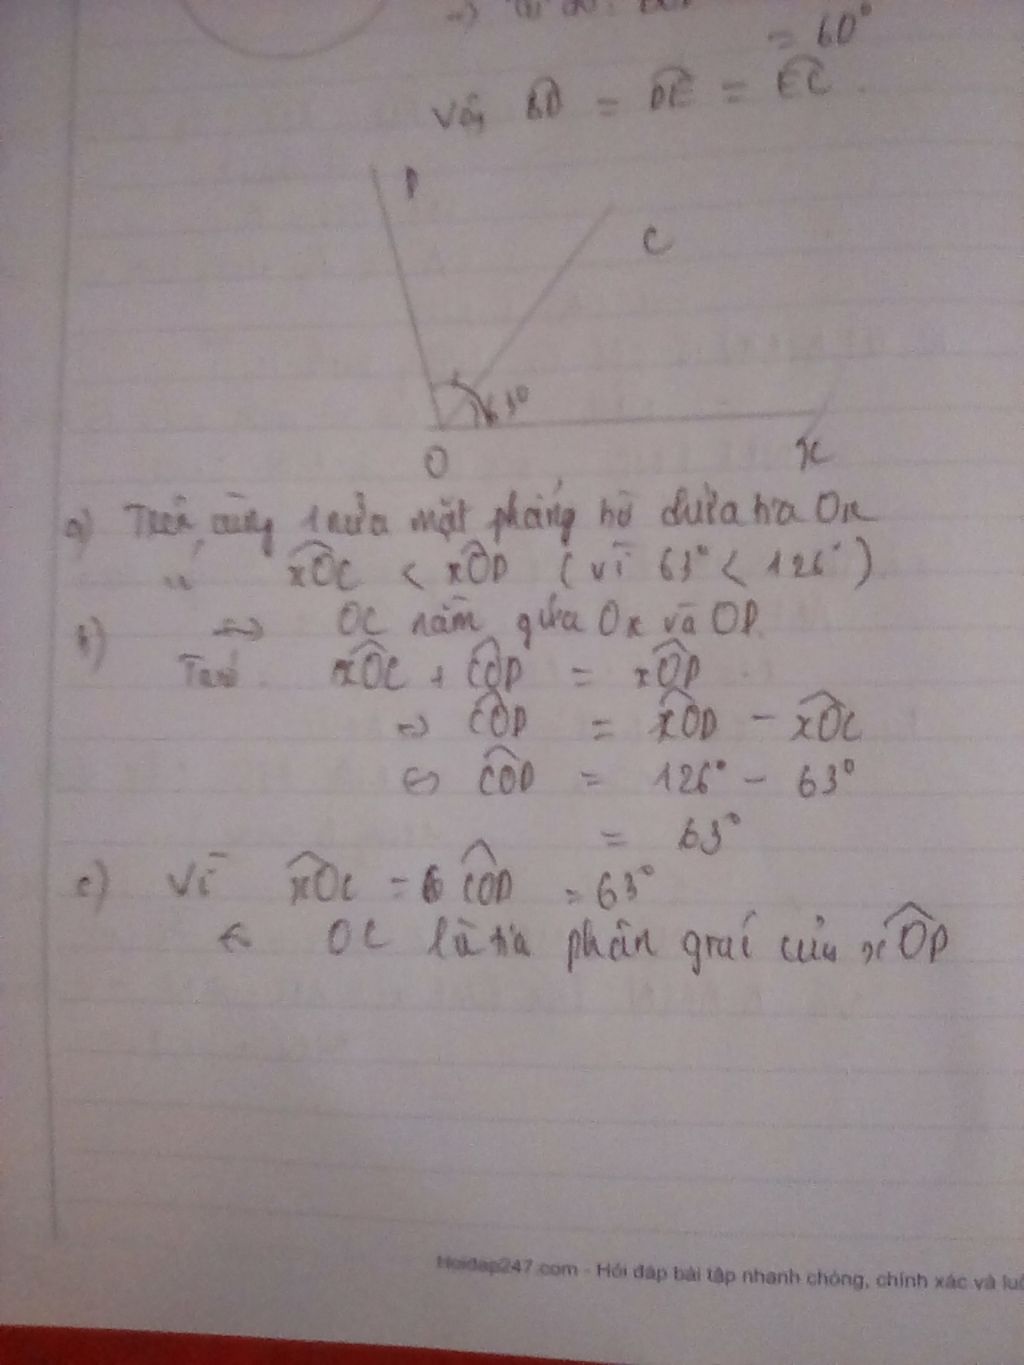 = 60°
Vậy BD = DE = EC.
D
C
63°
O
x
a) Trên cùng 1 nửa mặt phẳng bờ chứa tia Ox
có xOC < xOD (vì 63° < 126°)
=> OC nằm giữa Ox và OD.
b) Ta có xOC + COD = xOD
=> COD = xOD - xOC
<=> COD = 126° - 63°
= 63°
c) Vì xOC = COD = 63°
OC là tia phân giác của xOD
Hoidap247.com - Hỏi đáp bài tập nhanh chóng, chính xác và